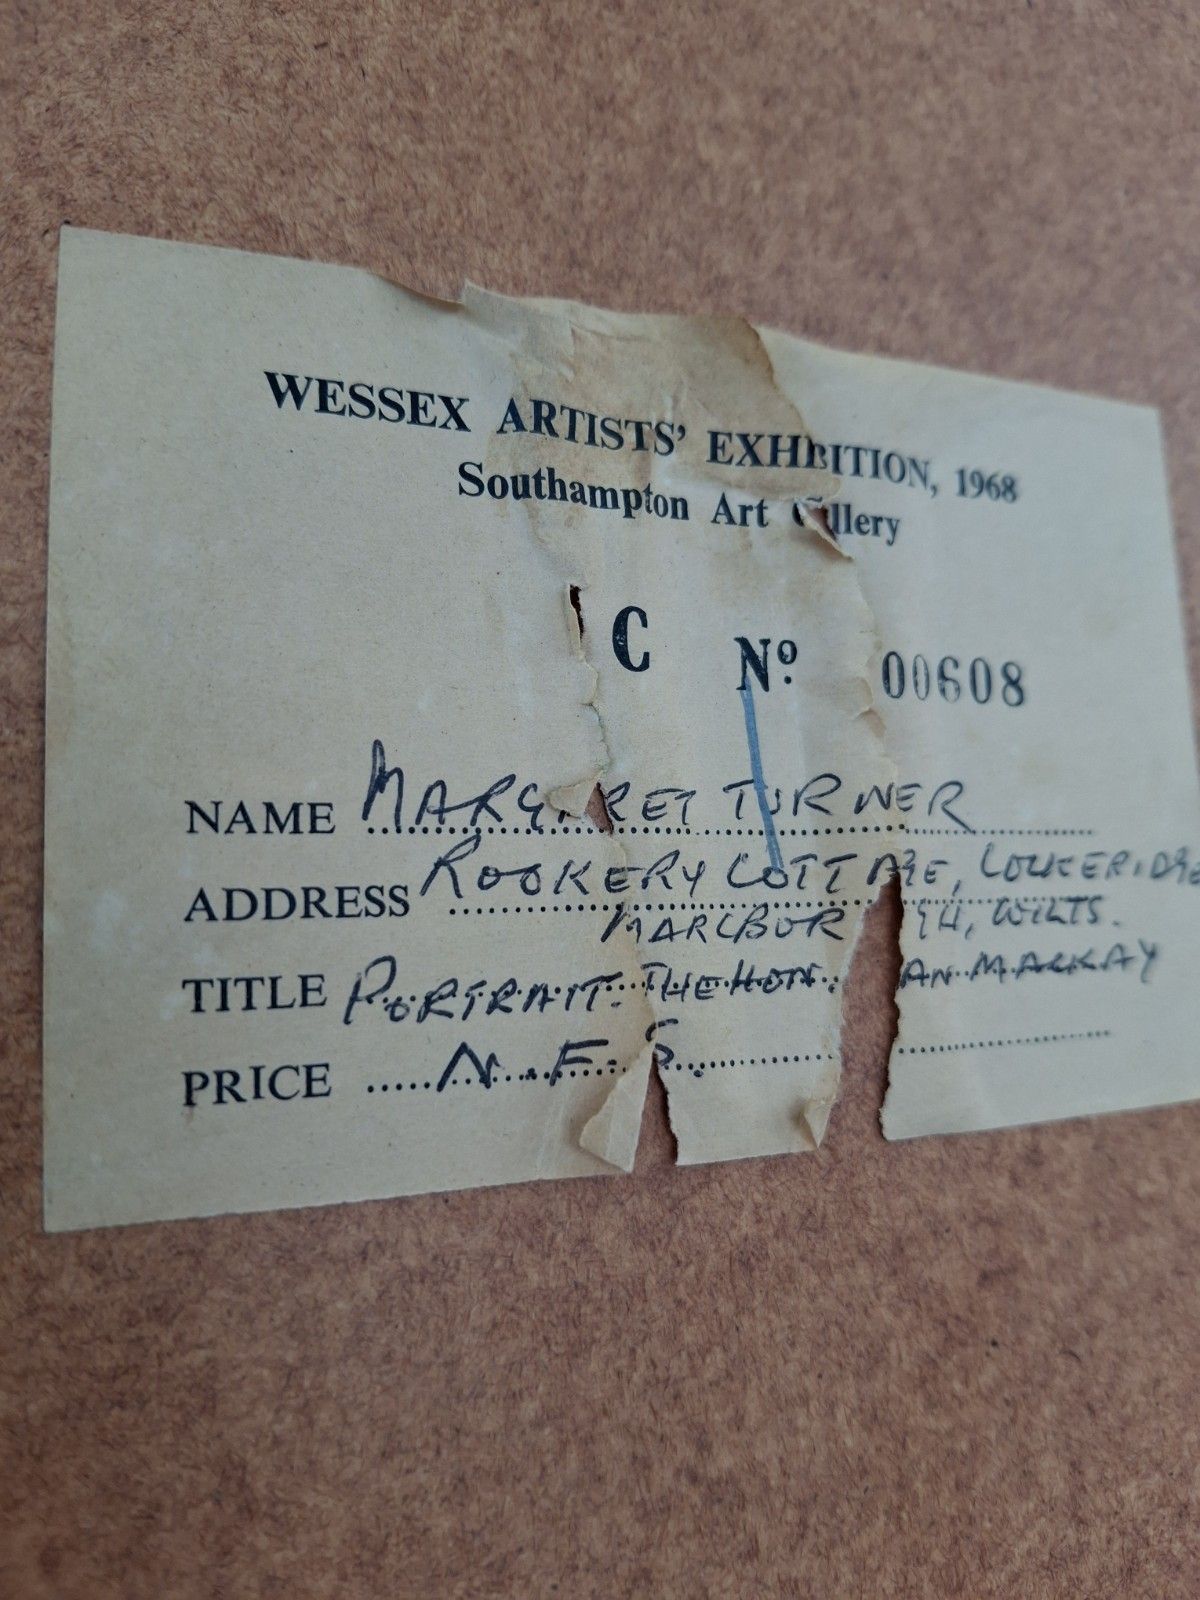 WESSEX ARTISTS' EXHIBITION, 1968
Southampton Art Gallery
C Nº 00608
NAME MARGARET TURNER
ADDRESS ROOKERY COTTAGE, LOCKERIDGE
MARLBOR GH, WILTS.
TITLE PORTRAIT. THE HON. AN MACKAY
PRICE N.F.S.